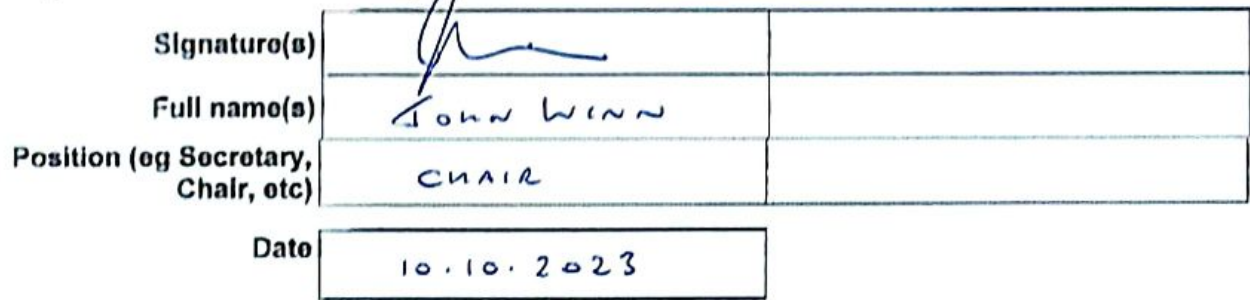 Signature(s)
Full name(s) JOHN WINN
Position (eg Secretary,
Chair, etc) CHAIR
Date 10.10.2023